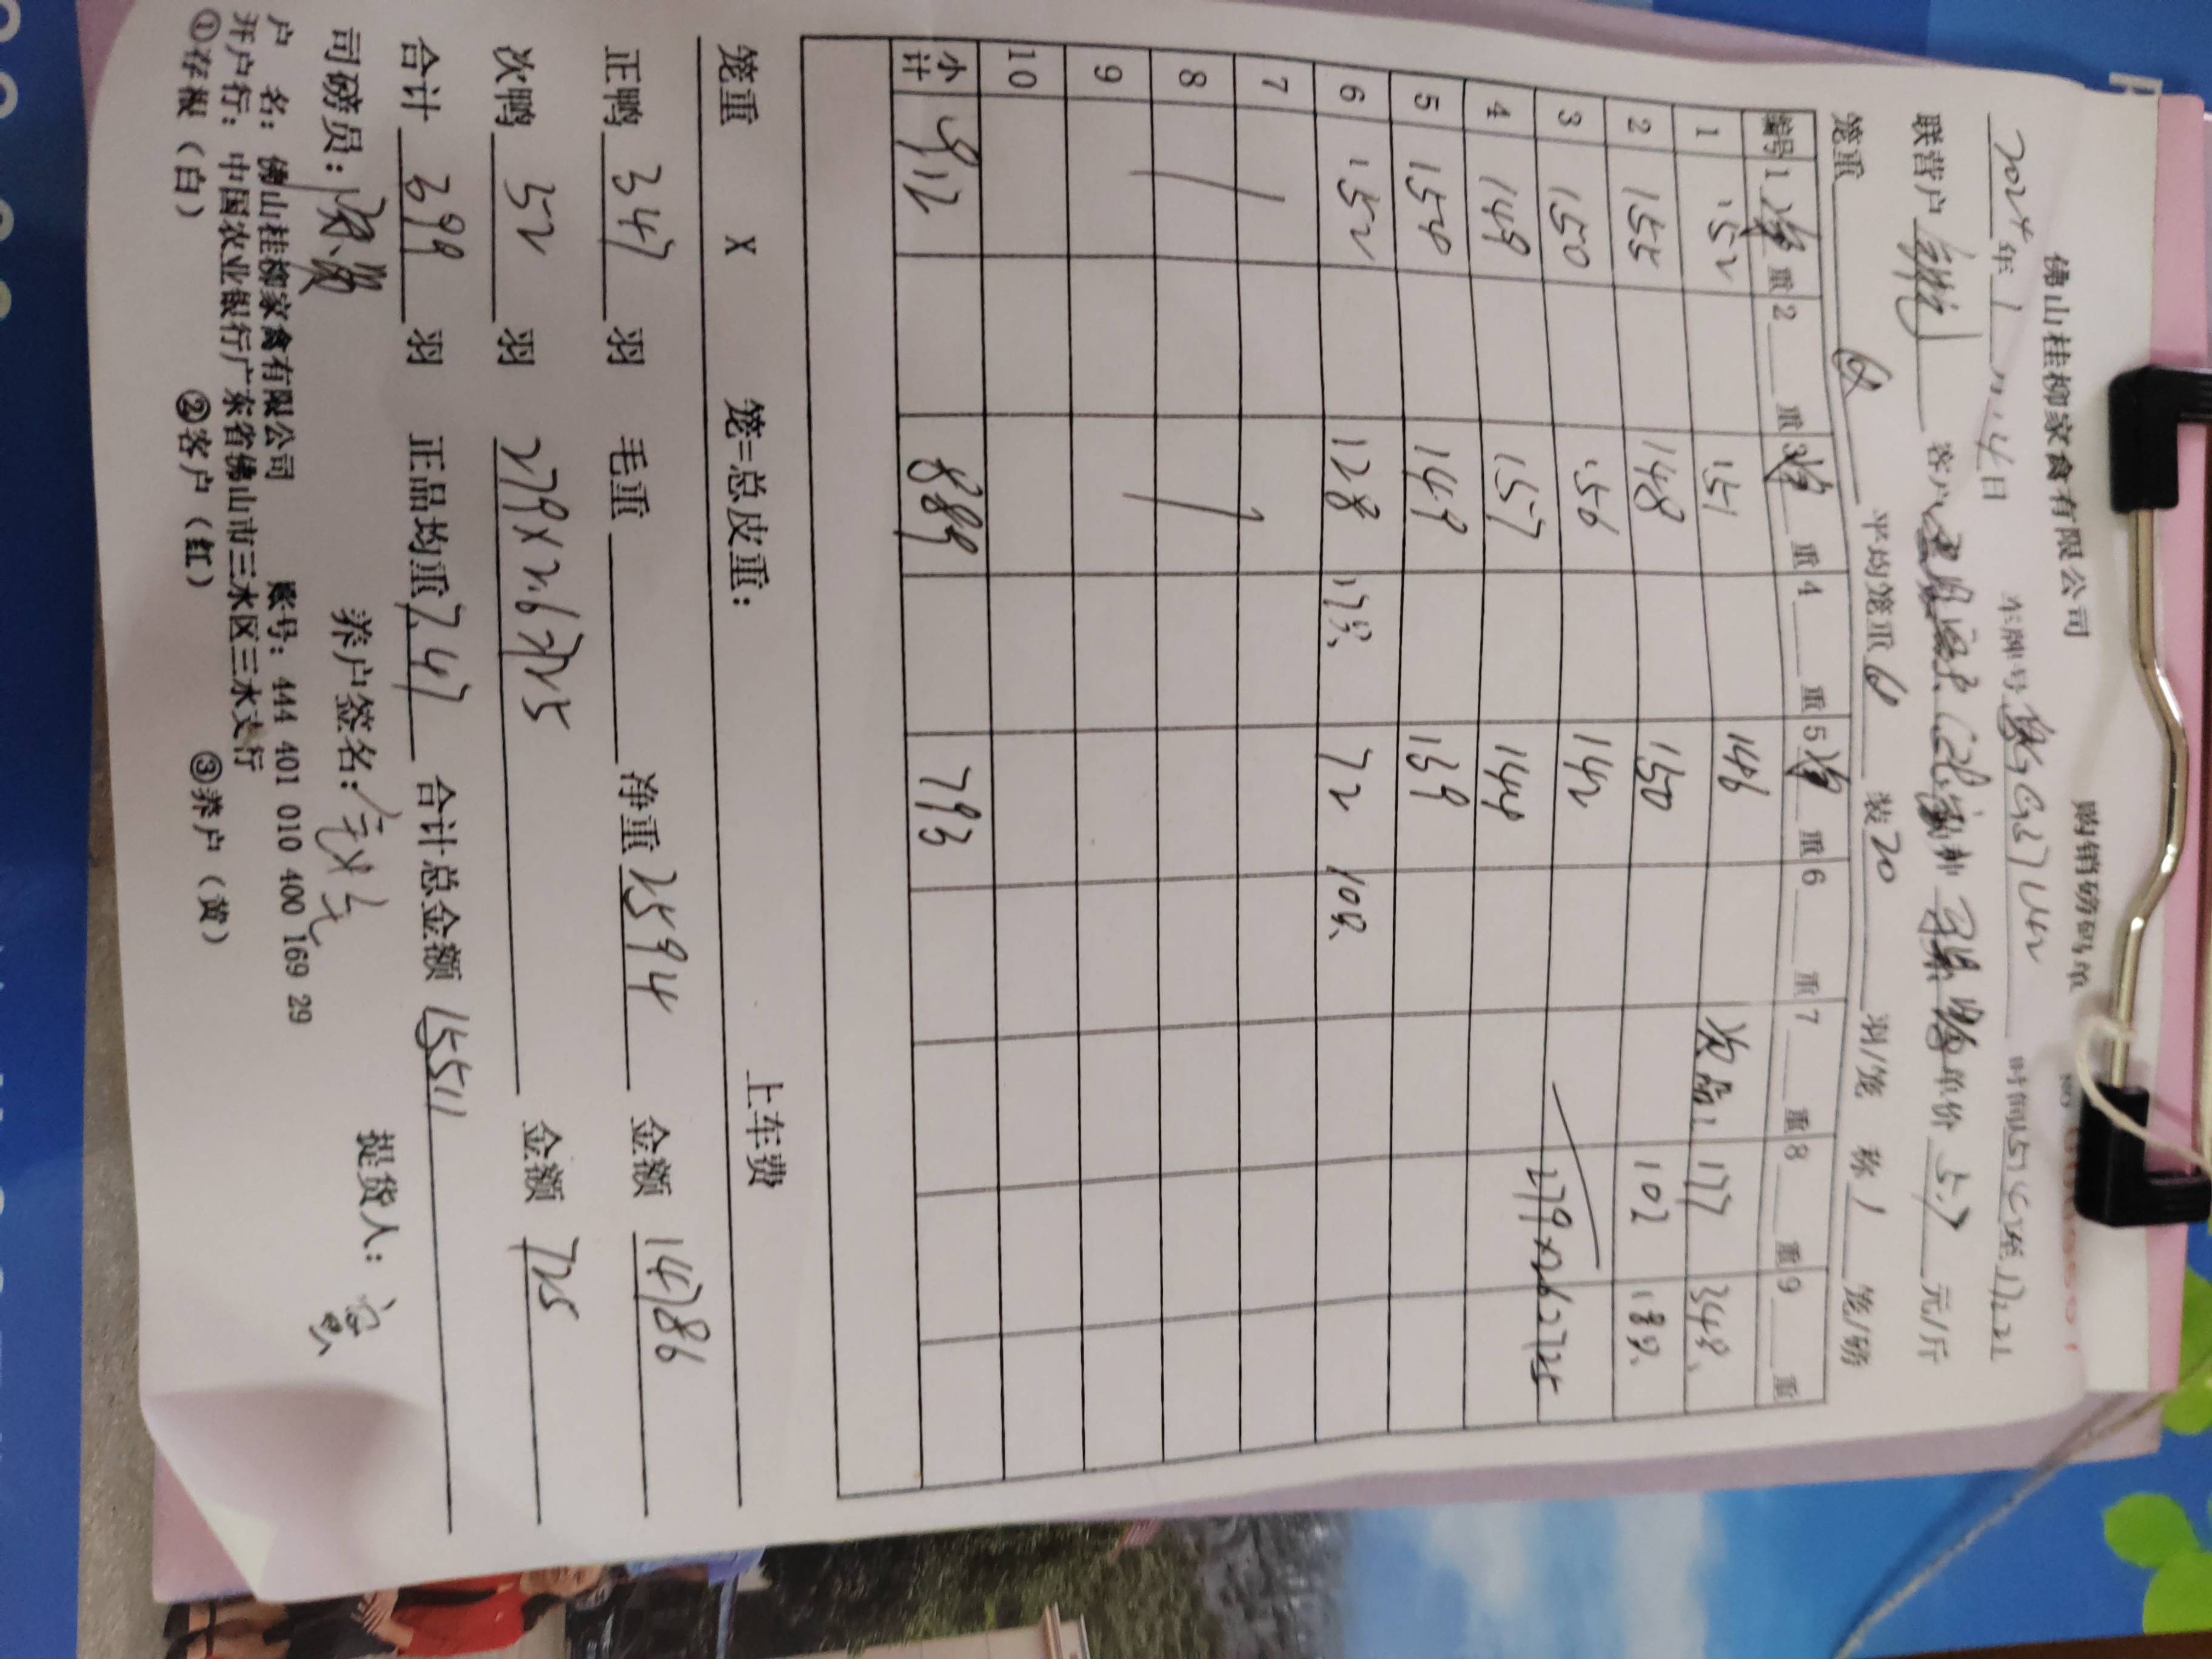 佛山桂柳家禽有限公司 购销磅码单
2024年1月14日 车牌号 时间 至
联营户 客户 单价 5.7 元/斤
笼重 平均笼重 装 20 羽/笼 称 1 笼/磅
编号 1 净重 2 重 3 净重 4 重 5 净重 6 重 7 重 8 重 9 重
1 152 151 146 次品: 177 34只、
2 155 148 150 102 18只、
3 150 156 142
4 149 157 144 279×2.6=725
5 154 149 139
6 152 128 17只、 72 10只、
7
8
9
10
小计 912 889 793
笼重 X 笼=总皮重: 上车费
正鸭 347 羽 毛重 净重 2594 金额 14786
次鸭 52 羽 279×2.6=725 金额 725
合计 399 羽 正品均重 7.47 合计总金额 15511
司磅员: 养户签名: 提货人:
户 名: 佛山桂柳家禽有限公司 账号: 444 401 010 400 169 29
开户行: 中国农业银行广东省佛山市三水区三水支行
①存根(白) ②客户(红) ③养户(黄)